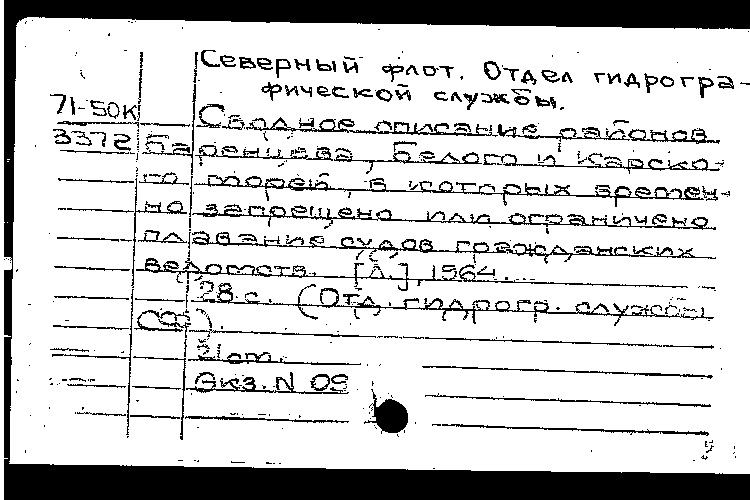 Северный флот. Отдел гидрогра-
фической службы.
71-50К Сводное описание районов
3372 Баренцева, Белого и Карско-
го морей, в которых времен-
но запрещено или ограничено
плавание судов гражданских
ведомств. [Л.], 1964.
28 с. (Отд. гидрогр. службы
СФ).
21 от.
Экз. N 09